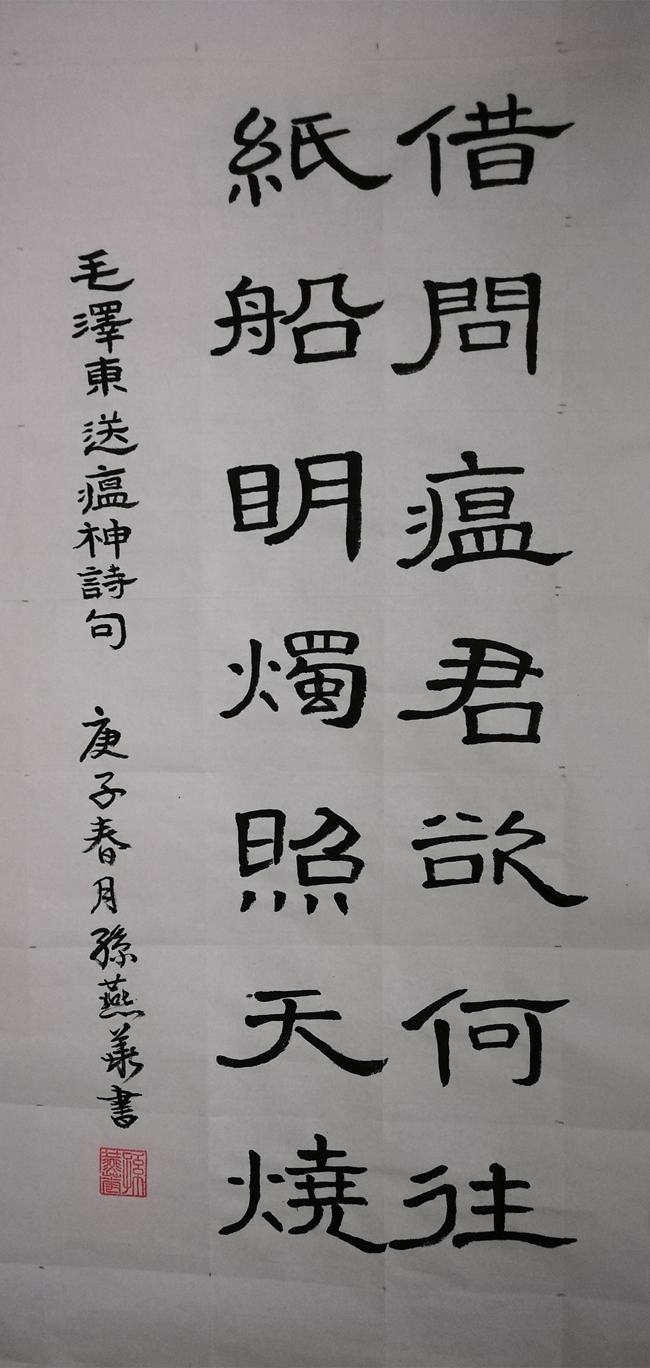 借問瘟君欲何往
紙船明燭照天燒
毛澤東送瘟神詩句 庚子春月孫燕華書